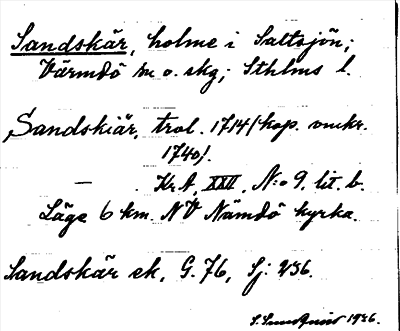 Sandskär, holme i Saltsjön;
Värmdö sn o. skg; Sthlms l.
Sandskiär, trol. 1714 (kop. omkr.
1740).
— Kr.A, XXII, N:o 9, lit. b.
Läge 6 km. NV Nämdö kyrka.
Sandskär ek, G. 76, Sj: 236.
S. Sundquist 1936.